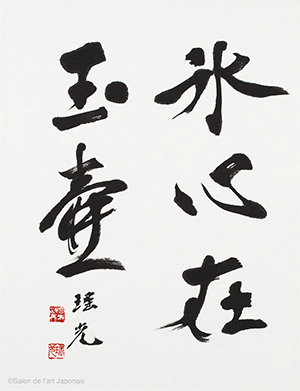 氷心在
玉壷
瑤光
©Salon de l'art Japonais